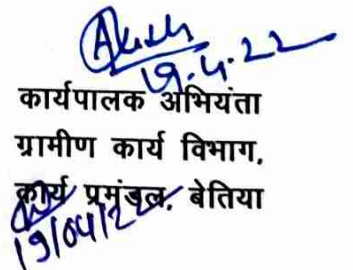 19.4.22
कार्यपालक अभियंता
ग्रामीण कार्य विभाग,
कार्य प्रमंडल, बेतिया
19/04/22